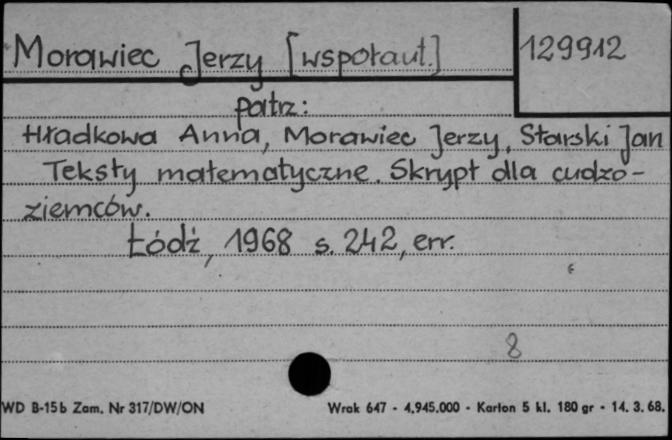 Morawiec Jerzy [współaut.]
129912
patrz:
Hładkowa Anna, Morawiec Jerzy, Starski Jan
Teksty matematyczne. Skrypt dla cudzo-
ziemców.
Łódź, 1968 s. 242, err.
8
WD B-15b Zam. Nr 317/DW/ON
Wrak 647 - 4.945.000 - Karton 5 kl. 180 gr - 14. 3. 68.